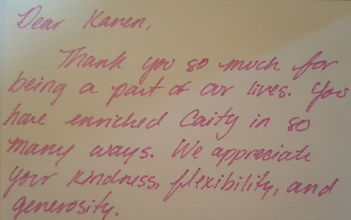 Dear Karen,
Thank you so much for
being a part of our lives. You
have enriched Caity in so
many ways. We appreciate
your kindness, flexibility, and
generosity.